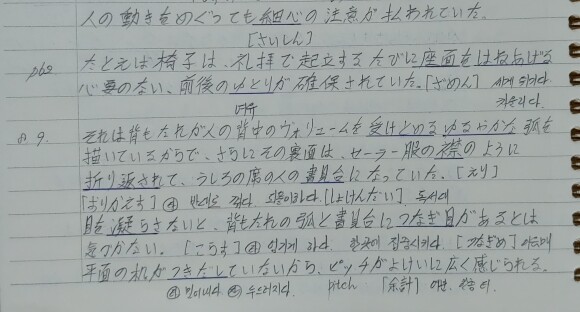 人の動きをめぐっても細心の注意が払われていた。
[さいしん]
p62 たとえば椅子は、礼拝で起立するたびに座面をはねあげる
必要のない、前後のゆとりが確保されていた。[ざめん]
여유
8.9. それは背もたれが人の背中のヴォリュームを受けとめるゆるやかな弧を
描いているからで、さらにその裏面は、セーラー服の襟のように
折り返されて、うしろの席の人の書見台になっていた。[えり]
[おりかえす] [しょけんだい] 독서대
目を凝らさないと、背もたれの弧と書見台につなぎ目があるとは
気づかない。[こらす] 한곳에 집중시키다. [つなぎめ] 이음매
平面の机がつきだしていないから、ピッチがよけいに広く感じられる。
pitch [余計]